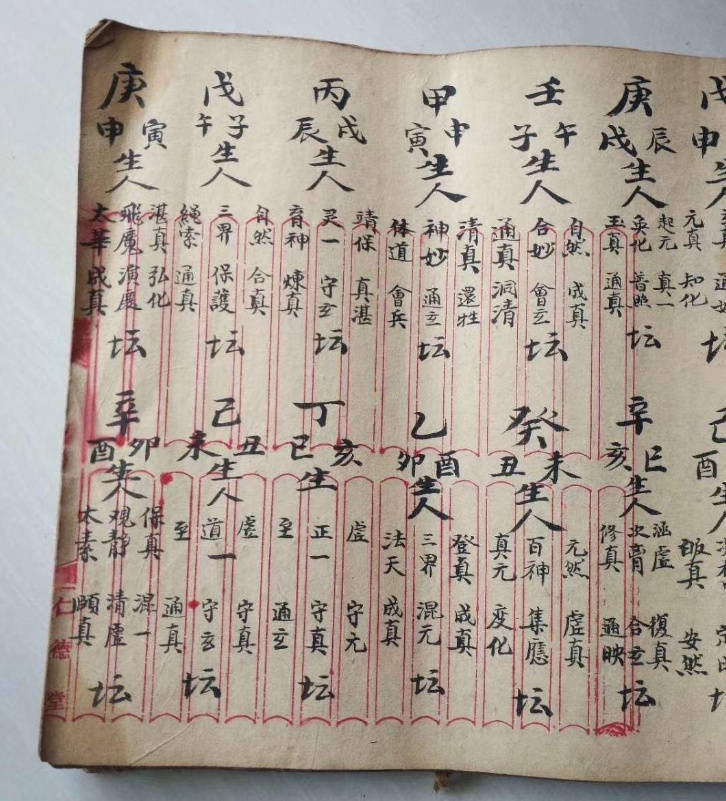 元真 知化
庚
戌辰
生人
起元 真一
奐化 普照
玉真 通真
坛
壬
子午
生人
自然 成真
合妙 會玄
通真 洞清
坛
甲
寅申
生人
清真 還牲
神妙 通玄
体道 會兵
坛
丙
辰戌
生人
靖保 真湛
灵一 守玄
育神 煉真
坛
戊
午子
生人
自然 合真
三界 保護
繩索 通真
坛
庚
申寅
生人
湛真 弘化
飛魔 演慶
太華 成真
坛
己
酉
生人
安然
辛
亥巳
生人
涵虛 復真
合玄
修真 通映
坛
癸
丑未
生人
元然 虛真
百神 集應
真元 度化
坛
乙
卯酉
生人
登真 成真
三界 混元
法天 成真
坛
丁
巳亥
生
虛 守元
正一 守真
至 通玄
坛
己
未丑
生人
虛 守真
道一 守玄
至 通真
坛
辛
酉卯
生人
保真 混一
观静 清虛
太素 頤真
坛
仁德堂